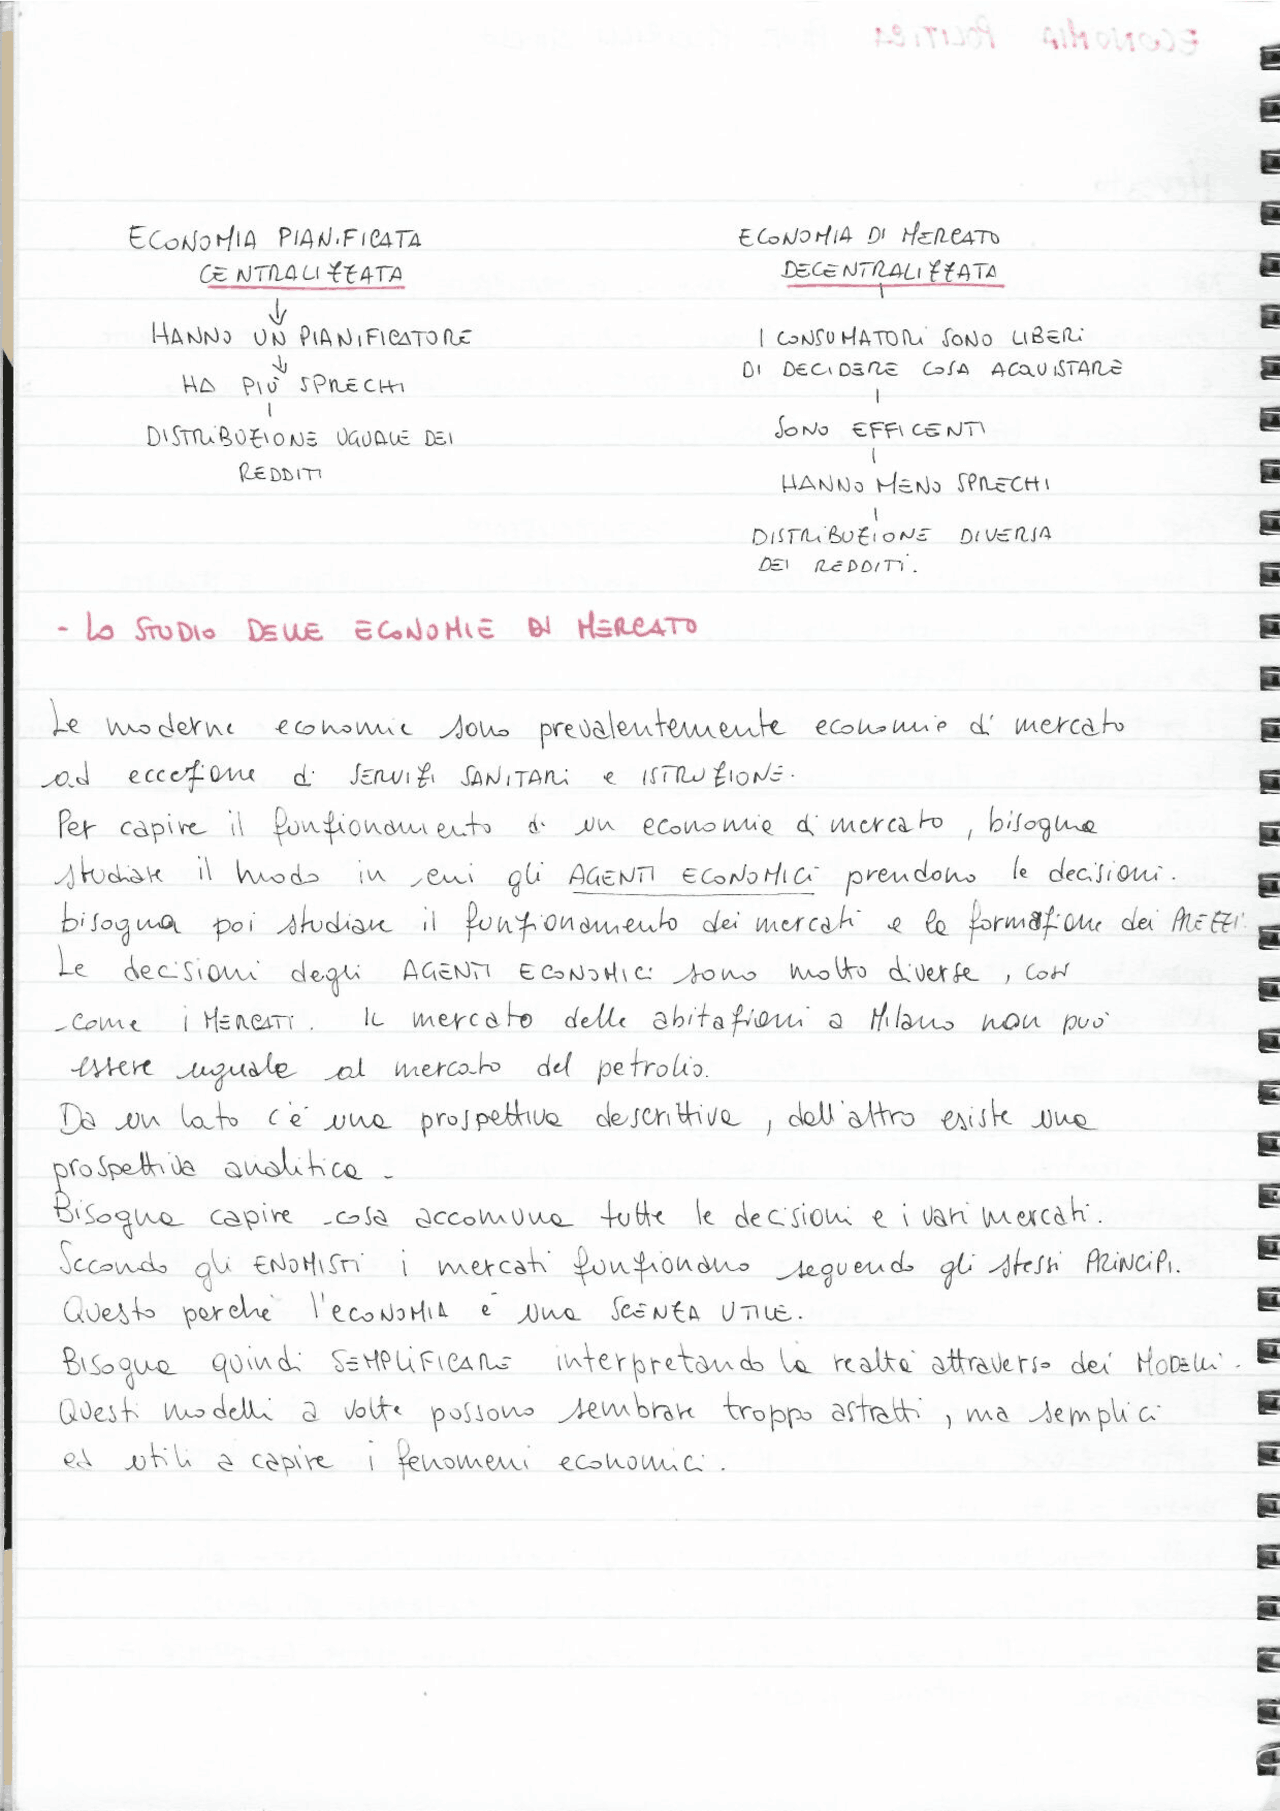 ECONOMIA PIANIFICATA
CENTRALIZZATA
HANNO UN PIANIFICATORE
HA PIÙ SPRECHI
DISTRIBUZIONE UGUALE DEI
REDDITI
ECONOMIA DI MERCATO
DECENTRALIZZATA
I CONSUMATORI SONO LIBERI
DI DECIDERE COSA ACQUISTARE
SONO EFFICENTI
HANNO MENO SPRECHI
DISTRIBUZIONE DIVERSA
DEI REDDITI.
- LO STUDIO DELLE ECONOMIE DI MERCATO
Le moderne economie sono prevalentemente economie di mercato
ad eccezione di SERVIZI SANITARI e ISTRUZIONE.
Per capire il funzionamento di un economia di mercato, bisogna
studiare il modo in cui gli AGENTI ECONOMICI prendono le decisioni.
bisogna poi studiare il funzionamento dei mercati e la formazione dei PREZZI.
Le decisioni degli AGENTI ECONOMICI sono molto diverse, così
come i MERCATI. Il mercato delle abitazioni a Milano non può
essere uguale al mercato del petrolio.
Da un lato c'è una prospettiva descrittiva, dall'altro esiste una
prospettiva analitica.
Bisogna capire cosa accomuna tutte le decisioni e i vari mercati.
Secondo gli ENOMISTI i mercati funzionano seguendo gli stessi PRINCIPI.
Questo perché l'ECONOMIA è una SCENZA UTILE.
Bisogna quindi SEMPLIFICARE interpretando la realtà attraverso dei MODELLI.
Questi modelli a volte possono sembrare troppo astratti, ma semplici
ed utili a capire i fenomeni economici.